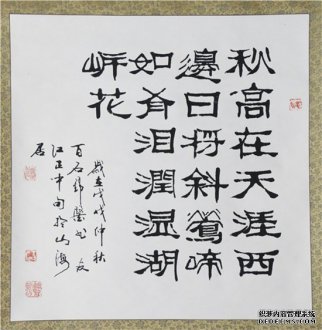 秋高在天涯西
邊日将斜鶯啼
如有泪潤湿湖
花
歲在戊戌仲秋
百石
江正中句於山海
居
织梦内容管理系统
DEDECMS.COM